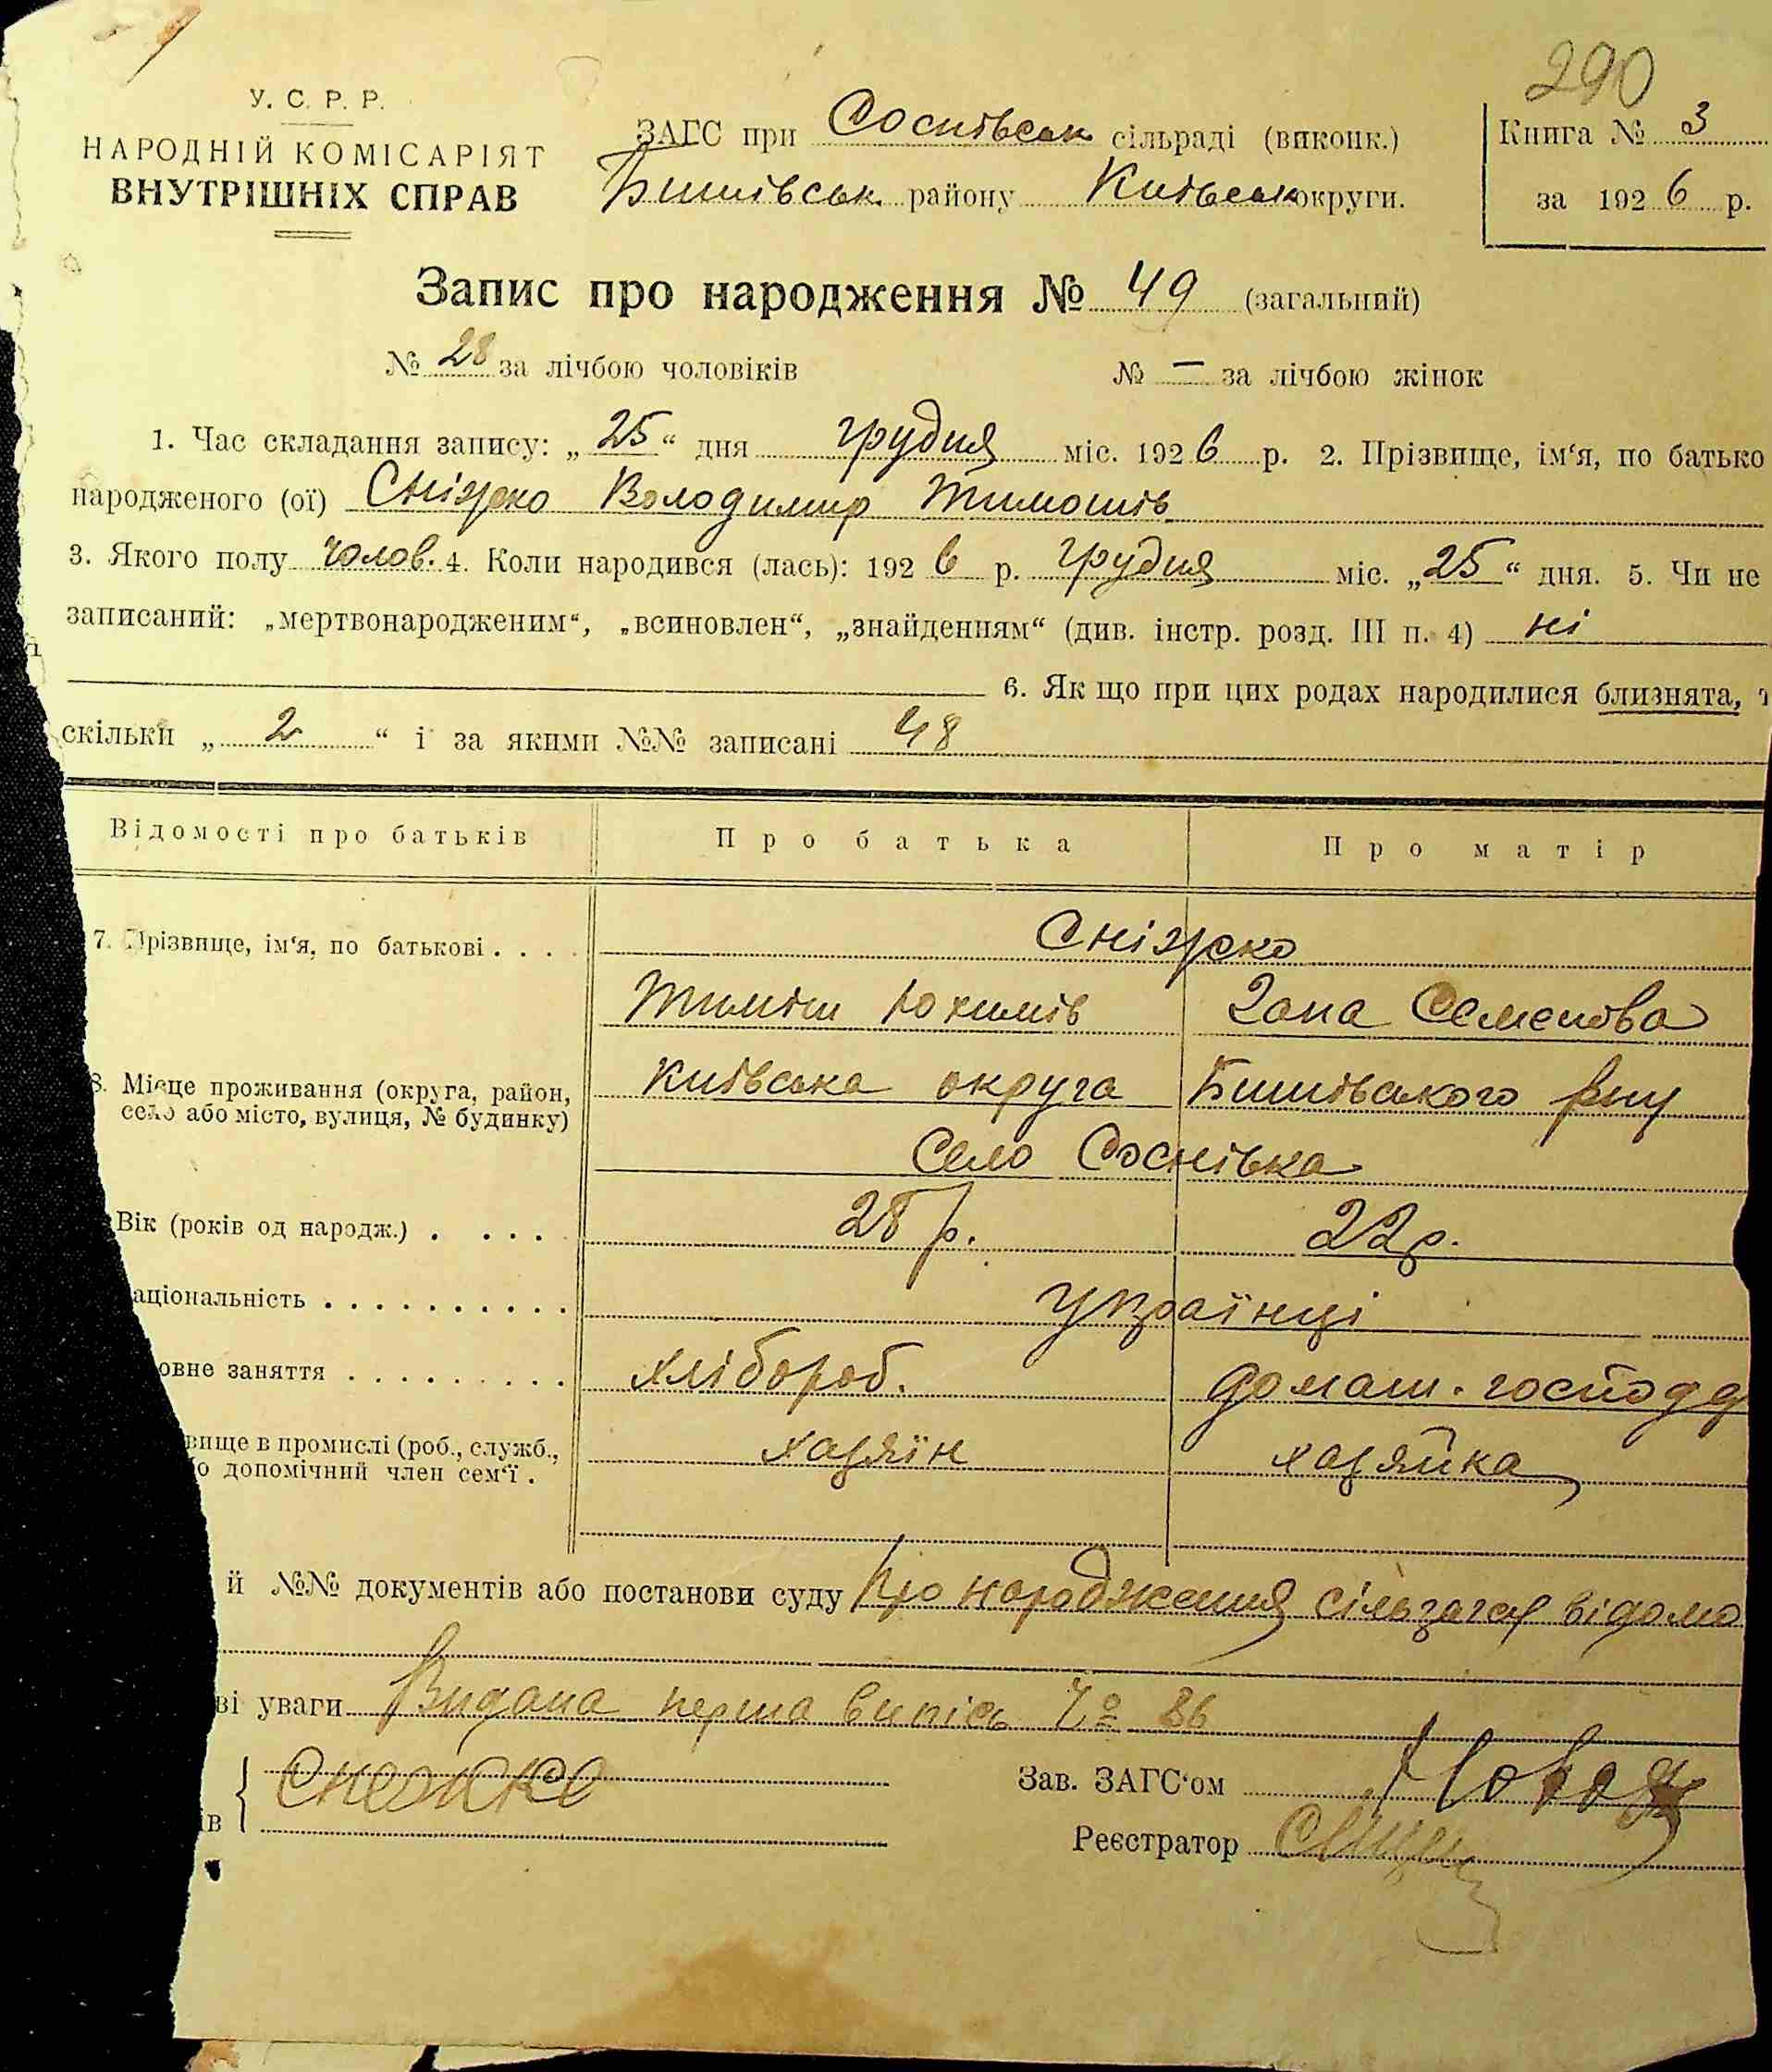 290
У. С. Р. Р.
НАРОДНІЙ КОМІСАРІЯТ
ВНУТРІШНІХ СПРАВ
ЗАГС при Соснівськ сільраді (виконк.)
Бишівськ. району Київськ округи.
Книга № 3
за 1926 р.
Запис про народження № 49 (загальний)
№ 28 за лічбою чоловіків № — за лічбою жінок
1. Час складання запису: „25“ дня грудня міс. 1926 р. 2. Прізвище, ім‘я, по батько
народженого (ої) Сніжко Володимир Тимошів
3. Якого полу чолов. 4. Коли народився (лась): 1926 р. грудня міс. „25“ дня. 5. Чи не
записаний: „мертвонародженим“, „всиновлен“, „знайденням“ (див. інстр. розд. III п. 4) ні
6. Як що при цих родах народилися близнята, т
скільки „2“ і за якими №№ записані 48
Відомості про батьків Про батька Про матір
7. Прізвище, ім‘я, по батькові . . . . Сніжко
Тиміш Юхимів Гана Семенова
8. Місце проживання (округа, район, Київська округа Бишівського рну
село або місто, вулиця, № будинку)
Село Соснівка
Вік (років од народж.) . . . . 28 р. 22 р.
аціональність . . . . . . . . . . Українці
овне заняття . . . . . . . . . хлібороб. домаш. господ
вище в промислі (роб., служб., хазяїн хазяйка
о допомічний член сем‘ї .
й №№ документів або постанови суду Про народження сільзагсу відомо
ві уваги Видана перша випись № 86
Снежко
Зав. ЗАГС‘ом
ів
Реєстратор